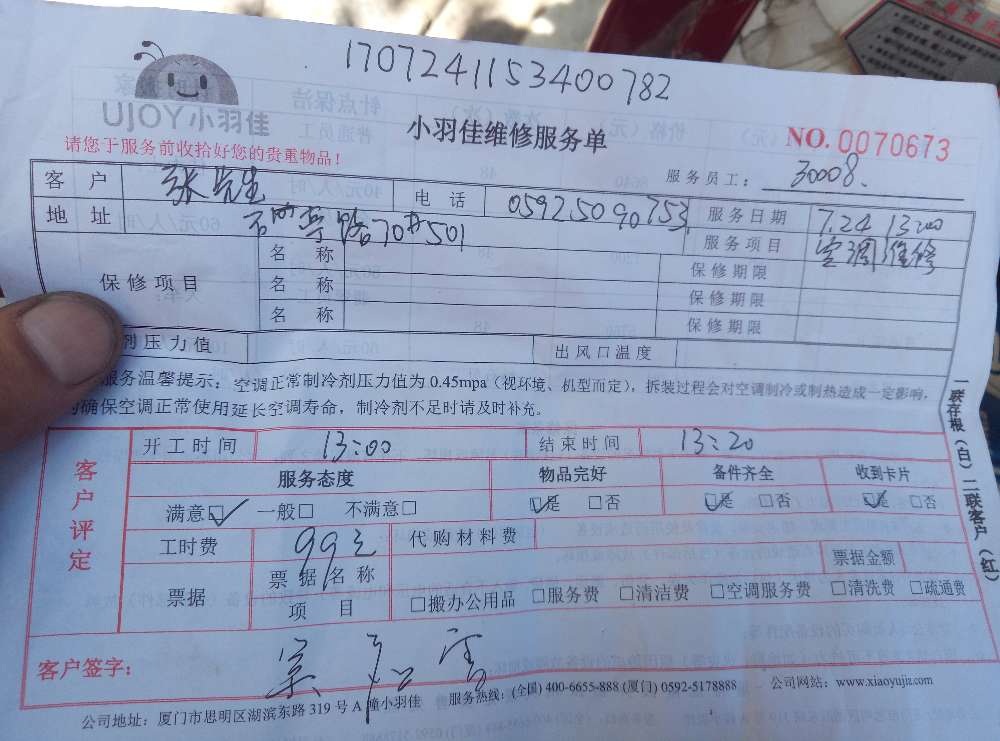 170724115340078​2
UJOY小羽佳
小羽佳维修服务单
NO. 0070673
请您于服务前收拾好您的贵重物品！
服务员工： 30008.
客户 张先生 电话 05925090753 服务日期 7.24 13:00
地址 路70#501 服务项目 空调维修
保修项目 名称 保修期限
名称 保修期限
名称 保修期限
剂压力值 出风口温度
服务温馨提示：空调正常制冷剂压力值为 0.45mpa（视环境、机型而定），拆装过程会对空调制冷或制热造成一定影响，
确保空调正常使用延长空调寿命，制冷剂不足时请及时补充。
客户评定
开工时间 13:00 结束时间 13:20
服务态度 物品完好 备件齐全 收到卡片
满意☑ 一般□ 不满意□ ☑是 □否 ☑是 □否 ☑是 □否
工时费 99元 代购材料费
票据 票据名称 票据金额
项目 □搬办公用品 □服务费 □清洁费 □空调服务费 □清洗费 □疏通费
客户签字：
公司地址：厦门市思明区湖滨东路 319 号 A 幢小羽佳 服务热线：(全国) 400-6655-888 (厦门) 0592-5178888 公司网站：www.xiaoyujia.com
一联存根（白）二联客户（红）